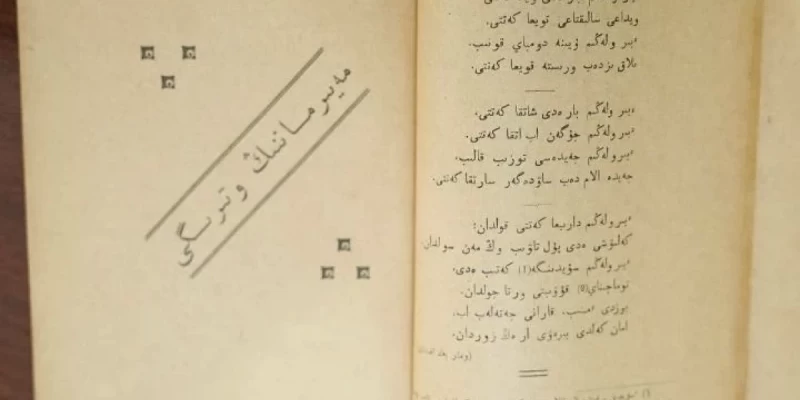 مەيىرماننىڭ وتىرىگى
ويداعى سالىقتاعى تويعا كەتتى.
ٴبىر ولەڭىم ٷيىنە دومباي قونىپ،
بلاق ىزدەپ ورىستە قويعا كەتتى.
ٴبىر ولەڭىم بار ەدى شاتقا كەتتى،
ٴبىر ولەڭىم جۇگەن اپ اتقا كەتتى.
ٴبىر ولەڭىم جەيدەسى توزىپ قالىپ،
جەيدە الام دەپ ساۋدەگەر سارتقا كەتتى.
ٴبىر ولەڭىم دارىيعا كەتتى قولدان؛
كەلۋشى ەدى پۇل تاۋىپ وڭ مەن سولدان.
ٴبىر ولەڭىم (1) كەتىپ ەدى،
ورتا جولدان.
بوزدى ٴمىنىپ، قارانى جەتەلەپ اپ،
امان كەلدى بىرەۋى زوردان.